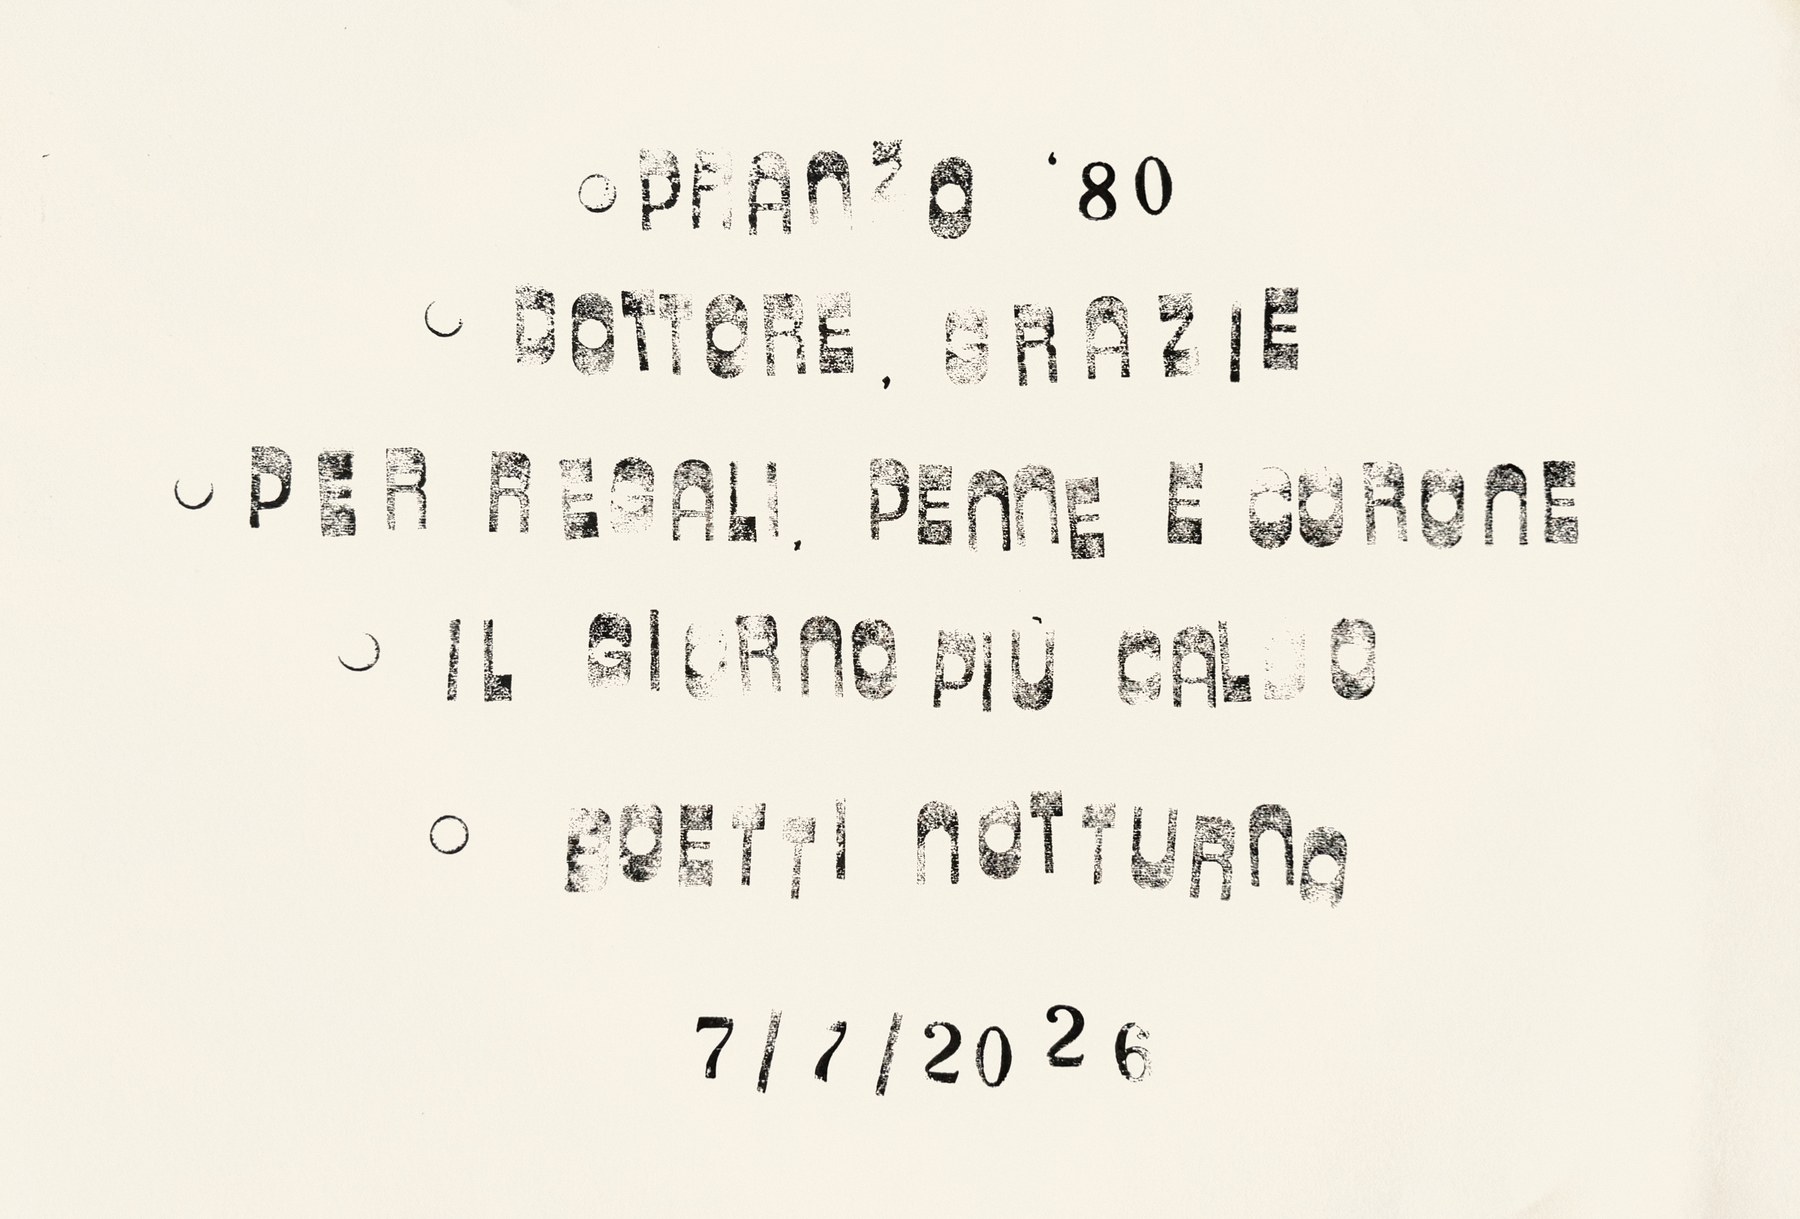 ○ PRANZO '80
○ DOTTORE, GRAZIE
○ PER REGALI, PENNE E CORONE
○ IL GIORNO PIÙ CALDO
○ BOETTI NOTTURNO
7/7/2026